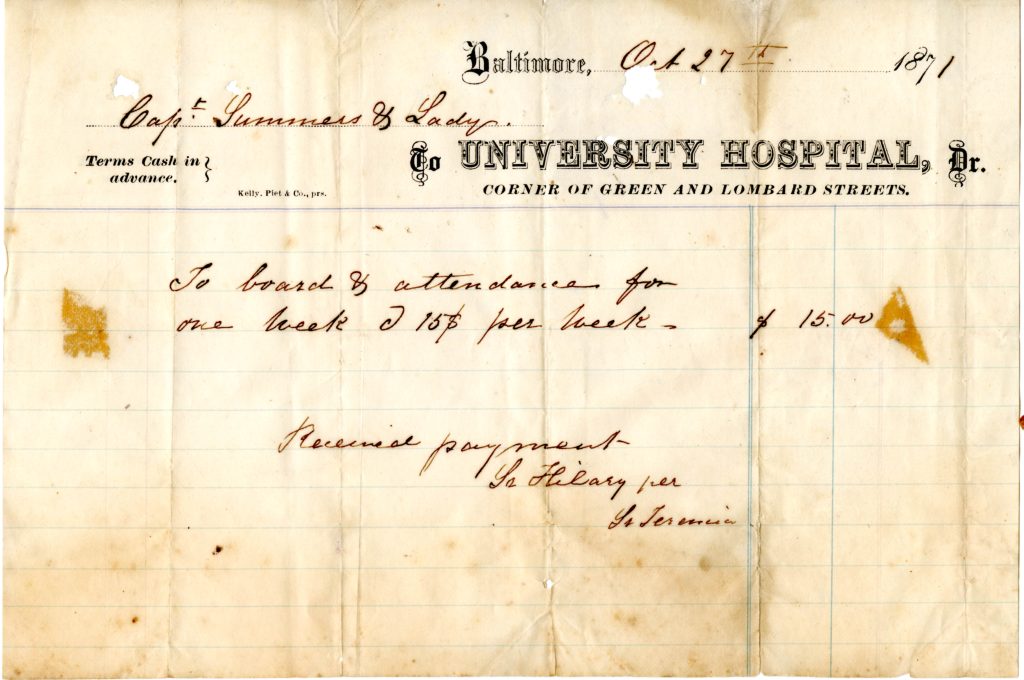 Baltimore, Oct 27th 1871
Capt. Summers & Lady.
Terms Cash in advance.
To UNIVERSITY HOSPITAL, Dr.
CORNER OF GREEN AND LOMBARD STREETS.
Kelly, Piet & Co., prs.
To board & attendance for
one week @ 15$ per week - $ 15.00
Received payment
Sr Hilary per
Sr